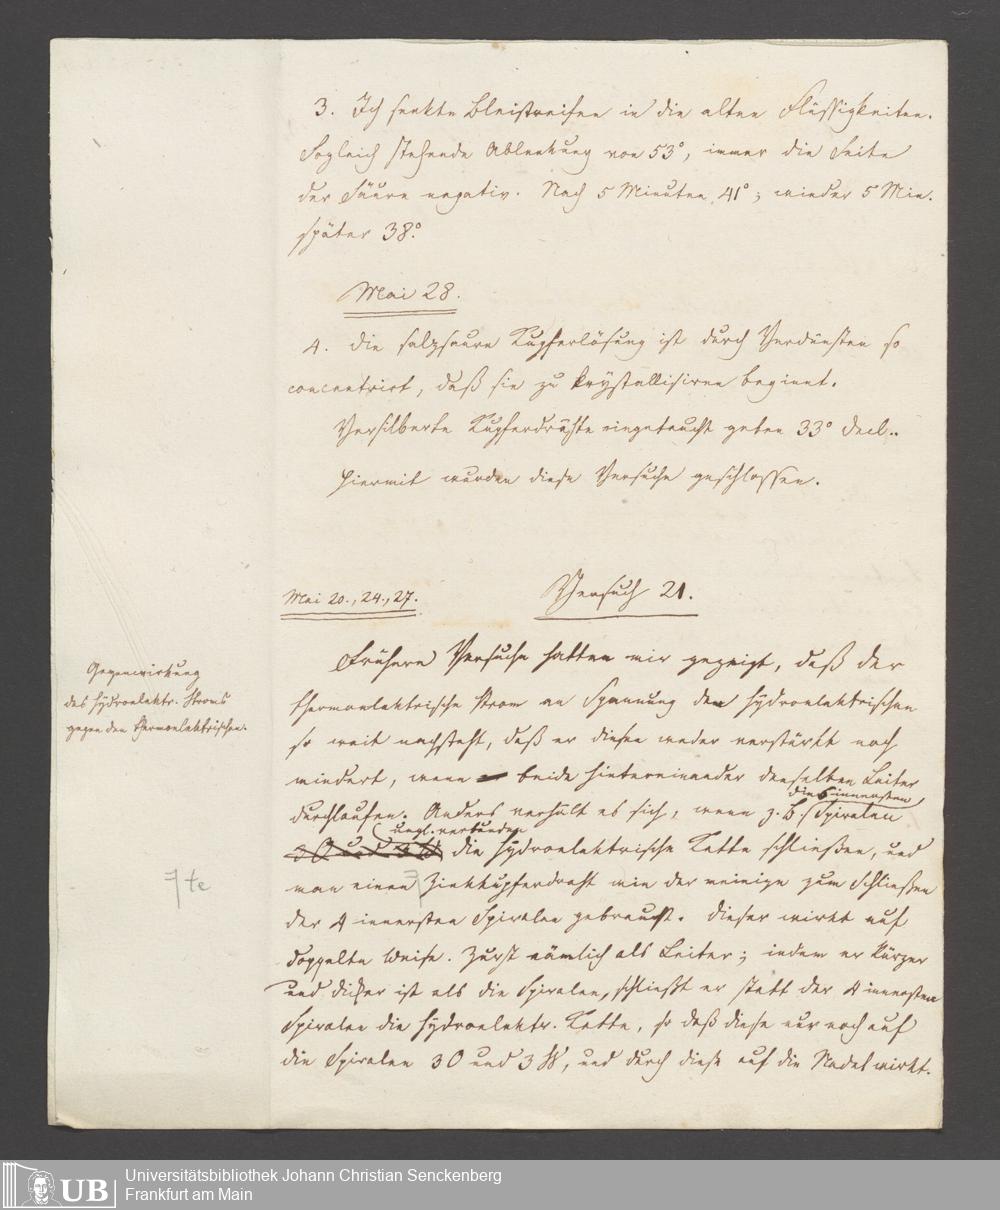 3. Ich senkte Bleistreifen in die alten Flüssigkeiten.
Sogleich stehende Ablenkung von 53°, immer die Seite
der Säure negativ. Nach 5 Minuten 41°; wieder 5 Min.
später 38°.
Mai 28.
4. Die salzsaure Kupferlösung ist durch Verdünsten so
concentrirt, daß sie zu krystallisiren beginnt.
Versilberte Kupferdrähte eingetaucht geben 33° decl..
Hiermit wurden diese Versuche geschlossen.
Mai 20., 24., 27.
Versuch 21.
Gegenwirkung
des hydroelektr. Stroms
gegen den thermoelektrischen.
Frühere Versuche hatten mir gezeigt, daß der
thermoelektrische Strom an Spannung dem hydroelektrischen
so weit nachsteht, daß er diesen weder verstärkt noch
mindert, wenn beide hintereinander denselben Leiter
durchlaufen. Anders verhält es sich, wenn z. B. die 6 innersten Spiralen
3 O und 3 W vergl. verbunden die hydroelektrische Kette schließen, und
man einen Zinkkupferdraht wie der meinige zum Schließen
der 4 innersten Spiralen gebraucht. Dieser wirkt auf
doppelte Weise. Zurst nämlich als Leiter; indem er kürzer
und dicker ist als die Spiralen, schließt er statt der 4 innersten
Spiralen die hydroelektr. Kette, so daß diese nur noch auf
die Spiralen 3 O und 3 W, und durch diese auf die Nadel wirkt.
7te
UB
Universitätsbibliothek Johann Christian Senckenberg
Frankfurt am Main